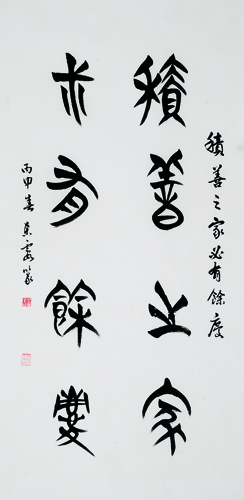 積善之家
必有餘慶
積善之家必有餘慶
丙申春